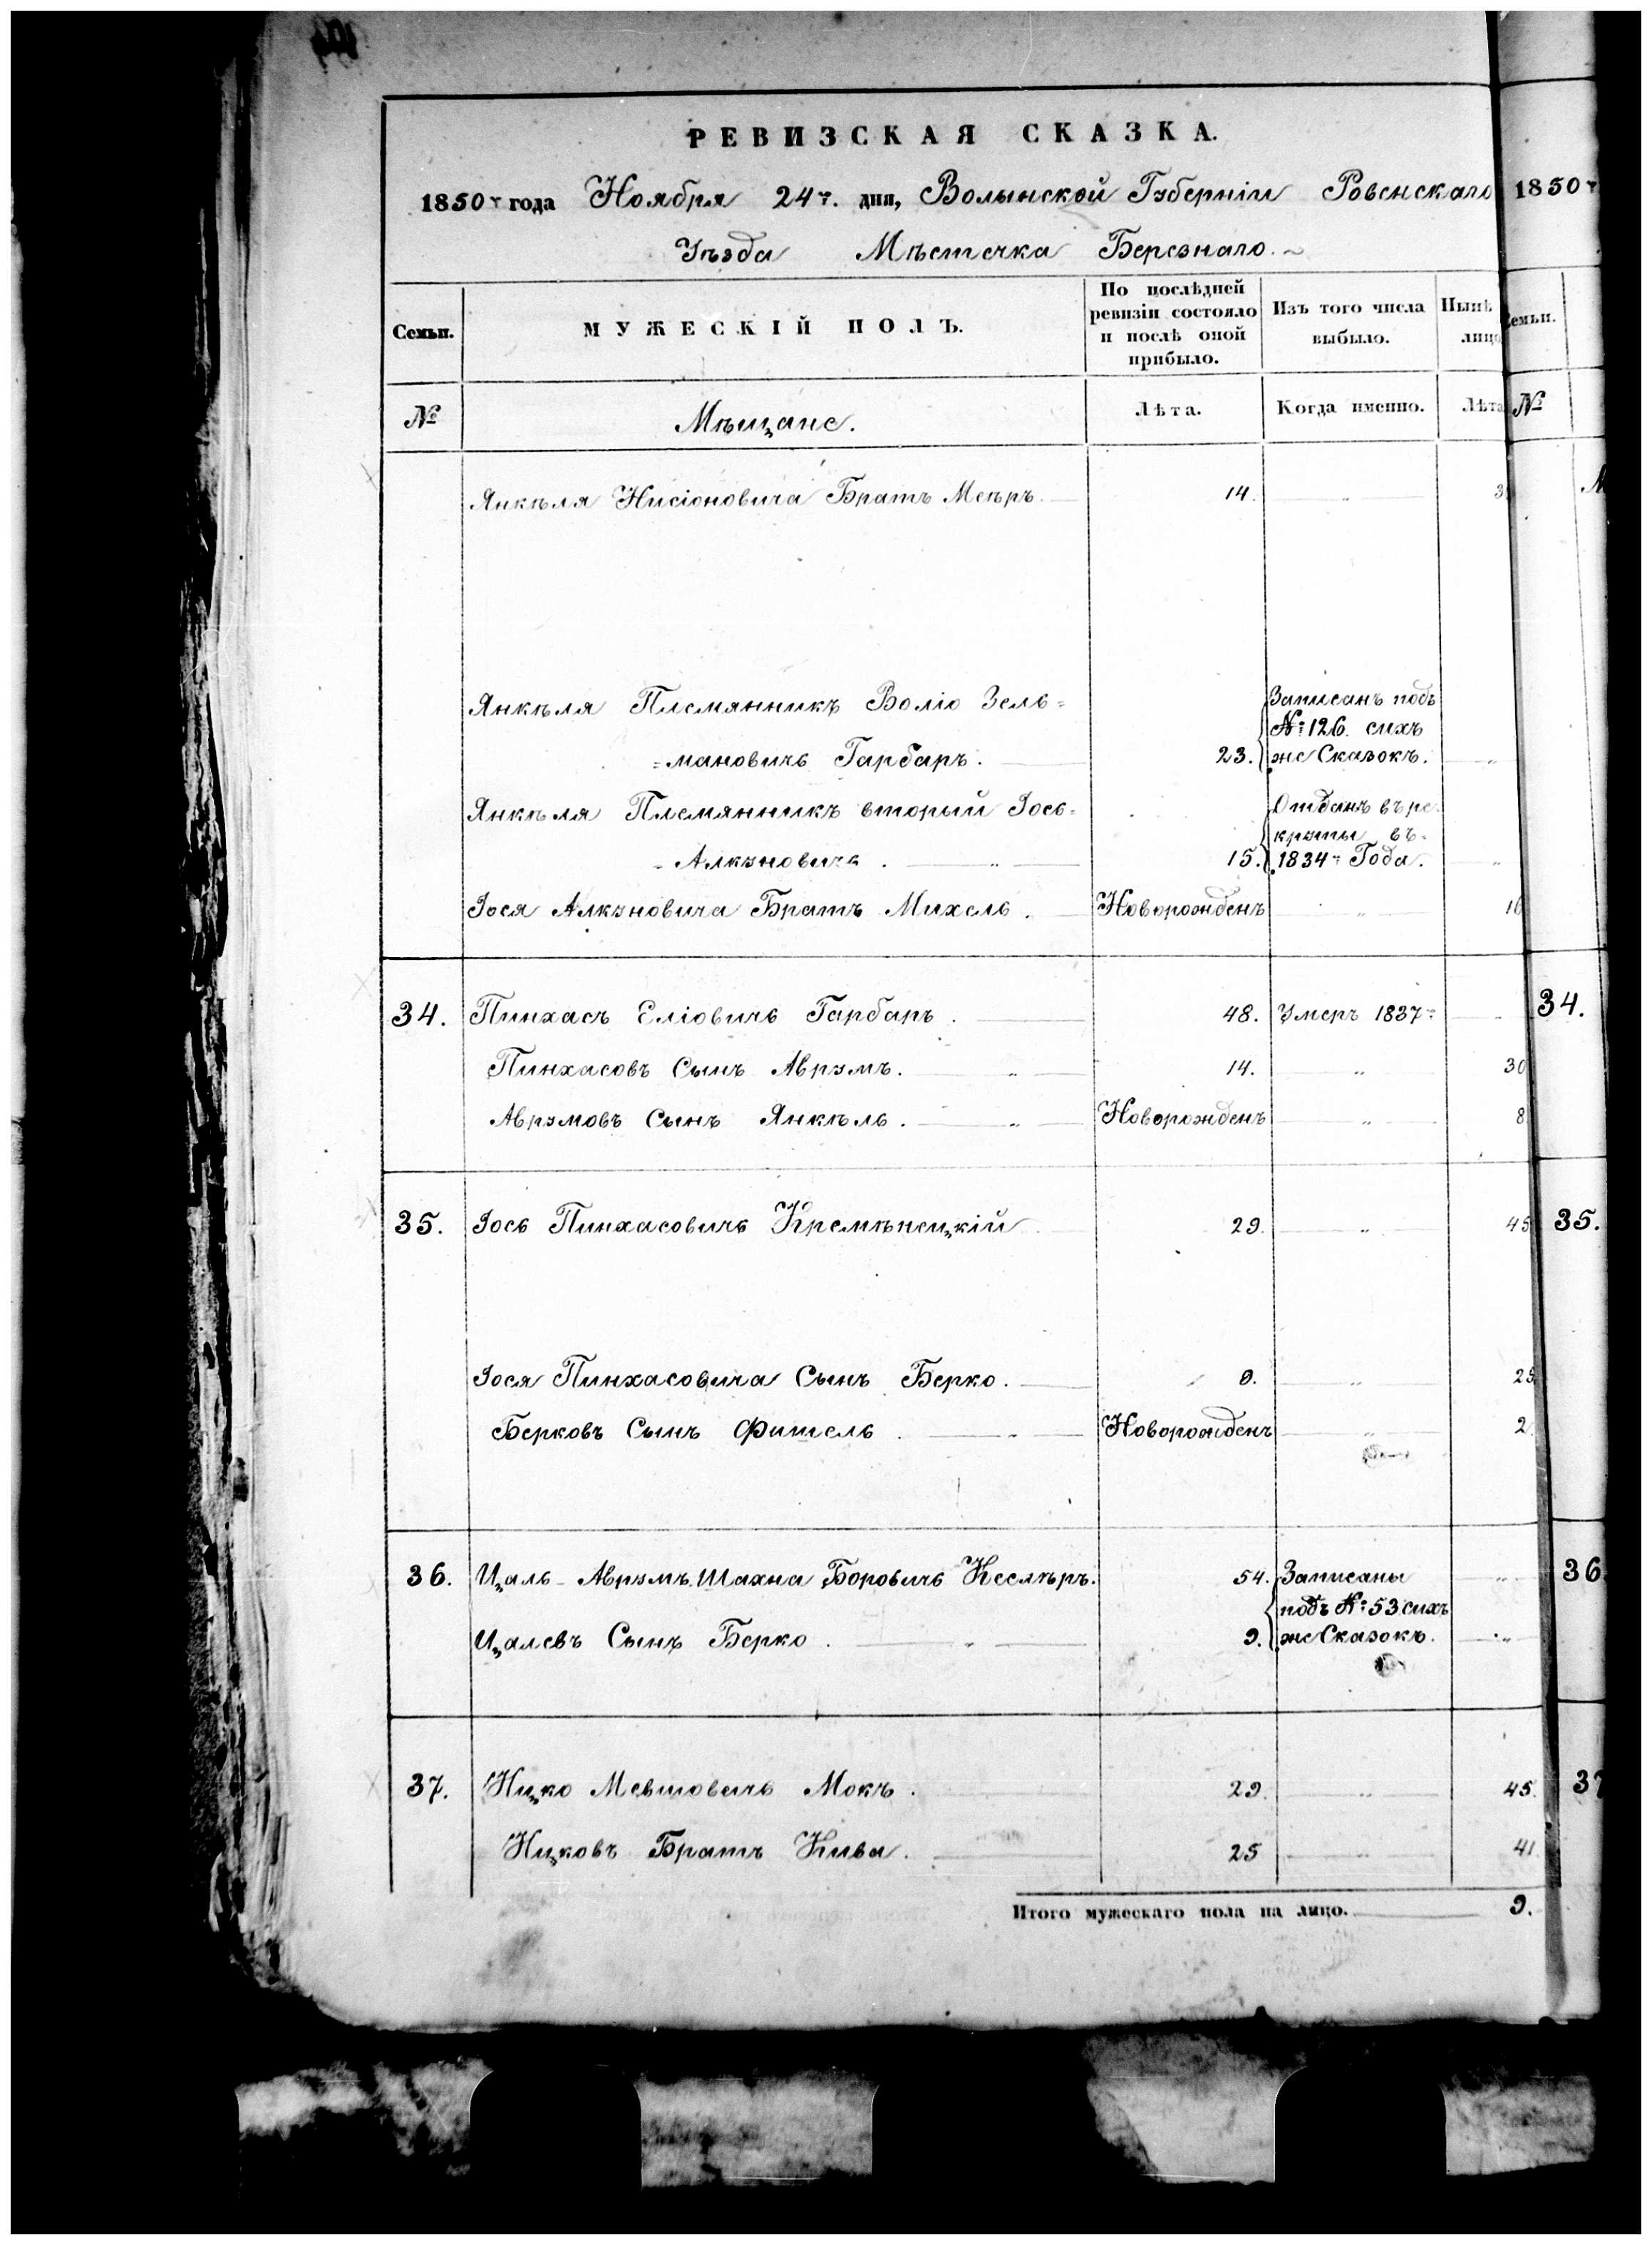 РЕВИЗСКАЯ СКАЗКА.
1850г года Ноября 24го. дня, Волынской Губерніи Ровенскаго
Уѣзда Мѣстечка Березнаго.
Семьи. МУЖЕСКІЙ ПОЛЪ. По послѣдней ревизіи состояло и послѣ оной прибыло. Изъ того числа выбыло. Нынѣ лицо
№ Мѣщане. Лѣта. Когда именно. Лѣта
Янкѣля Нисіоновича Братъ Меѣръ 14. „ 3
Янкѣля Племянникъ Воліо Зель=
=мановичь Гарбаръ. 23. Записанъ подъ
№: 126. сихъ
же Сказокъ. „
Янкѣля Племянникъ вторый Іось=
=Алкуновичь. „ 15. Отданъ въ ре
круты въ
1834г Года. „
Іося Алкуновича Братъ Михель. Новорожденъ „ 16
34. Пинхасъ Еліовичь Гарбаръ. 48. Умеръ 1837г
Пинхасовъ Сынъ Аврумъ. „ 14. „ 30
Аврумовъ Сынъ Янкѣль. „ Новорожденъ „ 8
35. Іось Пинхасовичь Кремѣнецкій 29. „ 45
Іося Пинхасовича Сынъ Берко. 9. „ 25
Берковъ Сынъ Фишель. „ Новорожденъ „ 2
36. Цаль-Аврумъ Шахна Боровичь Кеслѣръ. 54. Записаны
подъ №: 53 сихъ
Цалевъ Сынъ Берко. „ 9. же Сказокъ. „
37. Ницко Мевшовичь Мокъ. 29. „ 45.
Ницковъ Братъ Кива. 25 „ 41.
Итого мужескаго пола на лицо. 9.
1850г
Семьи.
№
34.
35.
36.
37